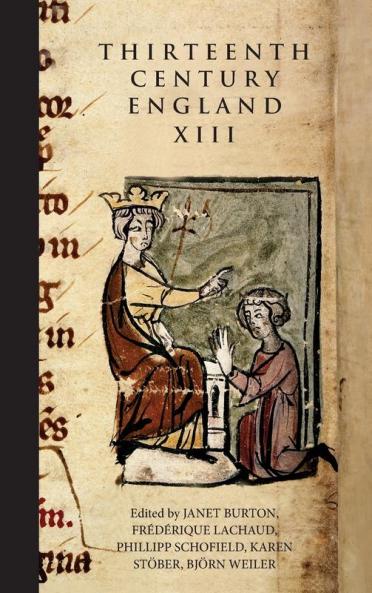 THIRTEENTH
CENTURY
ENGLAND
XIII
Edited by JANET BURTON,
FRÉDÉRIQUE LACHAUD,
PHILLIPP SCHOFIELD, KAREN
STÖBER, BJÖRN WEILER
in